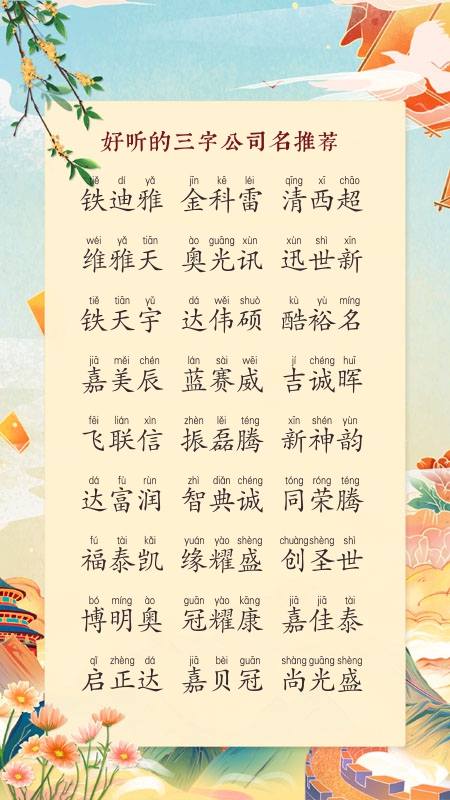 好听的三字公司名推荐
tiě dí yǎ jīn kē léi qīng xī chāo
铁迪雅 金科雷 清西超
wéi yǎ tiān ào guāng xùn xùn shì xīn
维雅天 奥光讯 迅世新
tiě tiān yǔ dá wěi shuò kù yù míng
铁天宇 达伟硕 酷裕名
jiā měi chén lán sài wēi jí chéng huī
嘉美辰 蓝赛威 吉诚晖
fēi lián xìn zhèn lěi téng xīn shén yùn
飞联信 振磊腾 新神韵
dá fù rùn zhì diǎn chéng tóng róng téng
达富润 智典诚 同荣腾
fú tài kǎi yuán yào shèng chuàng shèng shì
福泰凯 缘耀盛 创圣世
bó míng ào guān yào kāng jiā jiā tài
博明奥 冠耀康 嘉佳泰
qǐ zhèng dá jiā bèi guān shàng guāng shèng
启正达 嘉贝冠 尚光盛